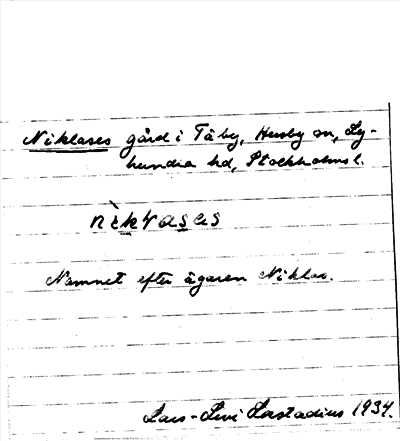 Niklases gård i Täby, Husby sn, Ly-
hundra hd, Stockholms l.
Namnet efter ägaren Niklas.
Lars-Levi Læstadius 1934.